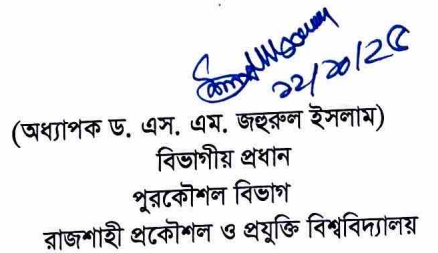 ১২/১০/২৫
(অধ্যাপক ড. এস. এম. জহুরুল ইসলাম)
বিভাগীয় প্রধান
পুরকৌশল বিভাগ
রাজশাহী প্রকৌশল ও প্রযুক্তি বিশ্ববিদ্যালয়